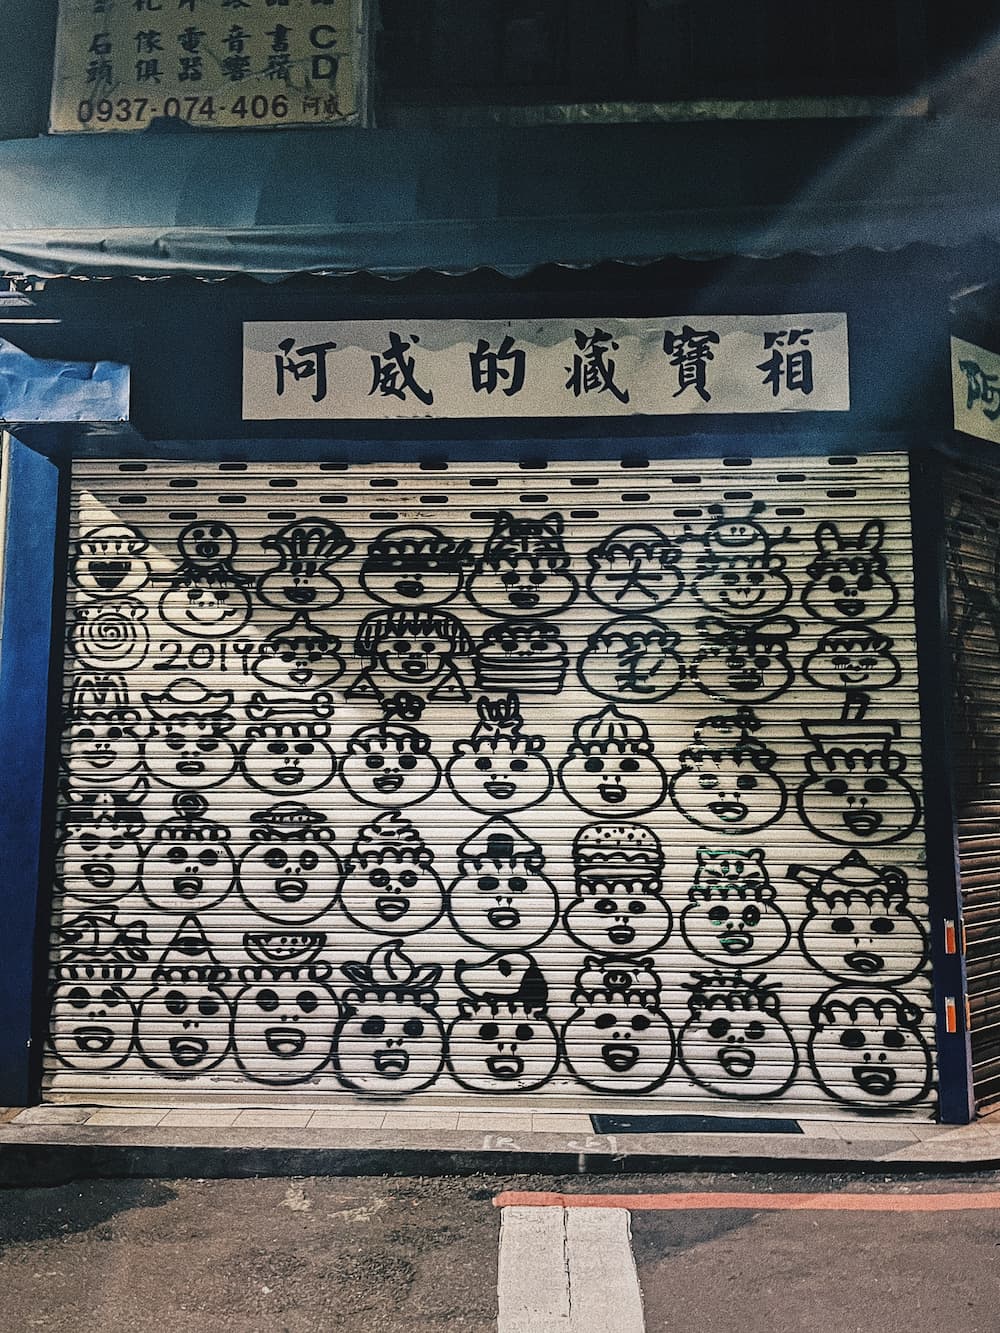 石 傢 電 音 書 C
頭 俱 器 響 籍 D
0937-074-406 阿威
阿威的藏寶箱
阿
2014
大